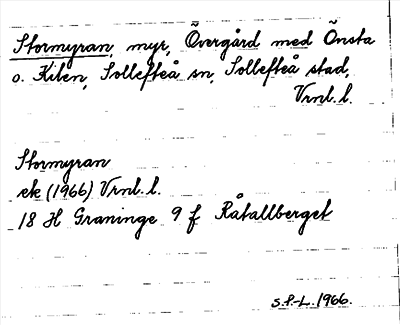 Stormyran, myr, Övergård med Önsta
o. Kilen, Sollefteå sn, Sollefteå stad,
Vrnl. l.
Stormyran
ek (1966) Vrnl. l.
18 H Graninge 9 f Råtallberget
S.P-L. 1966.